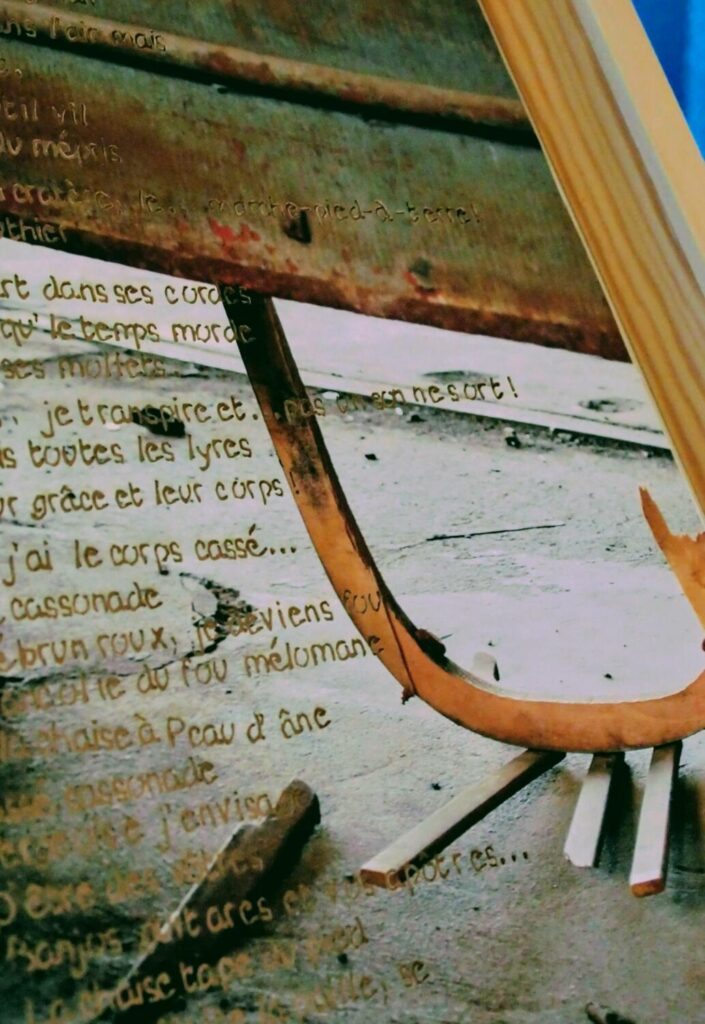 ns l'air mais
til vil
du mépris
cratère, le... marche-pied-à-terre!
thier
rt dans ses cordes
qu' le temps morde
ses mollets
.. je transpire et... pas un son ne sort !
s toutes les lyres
r grâce et leur corps !
j'ai le corps cassé...
cassonade
brun roux, je deviens fou
du fou mélomane
la chaise à Peau d'âne
cassonade
j'envisa
être des vôtres
Banjos, guitares et vos apôtres...
La chaise tape du pied
se